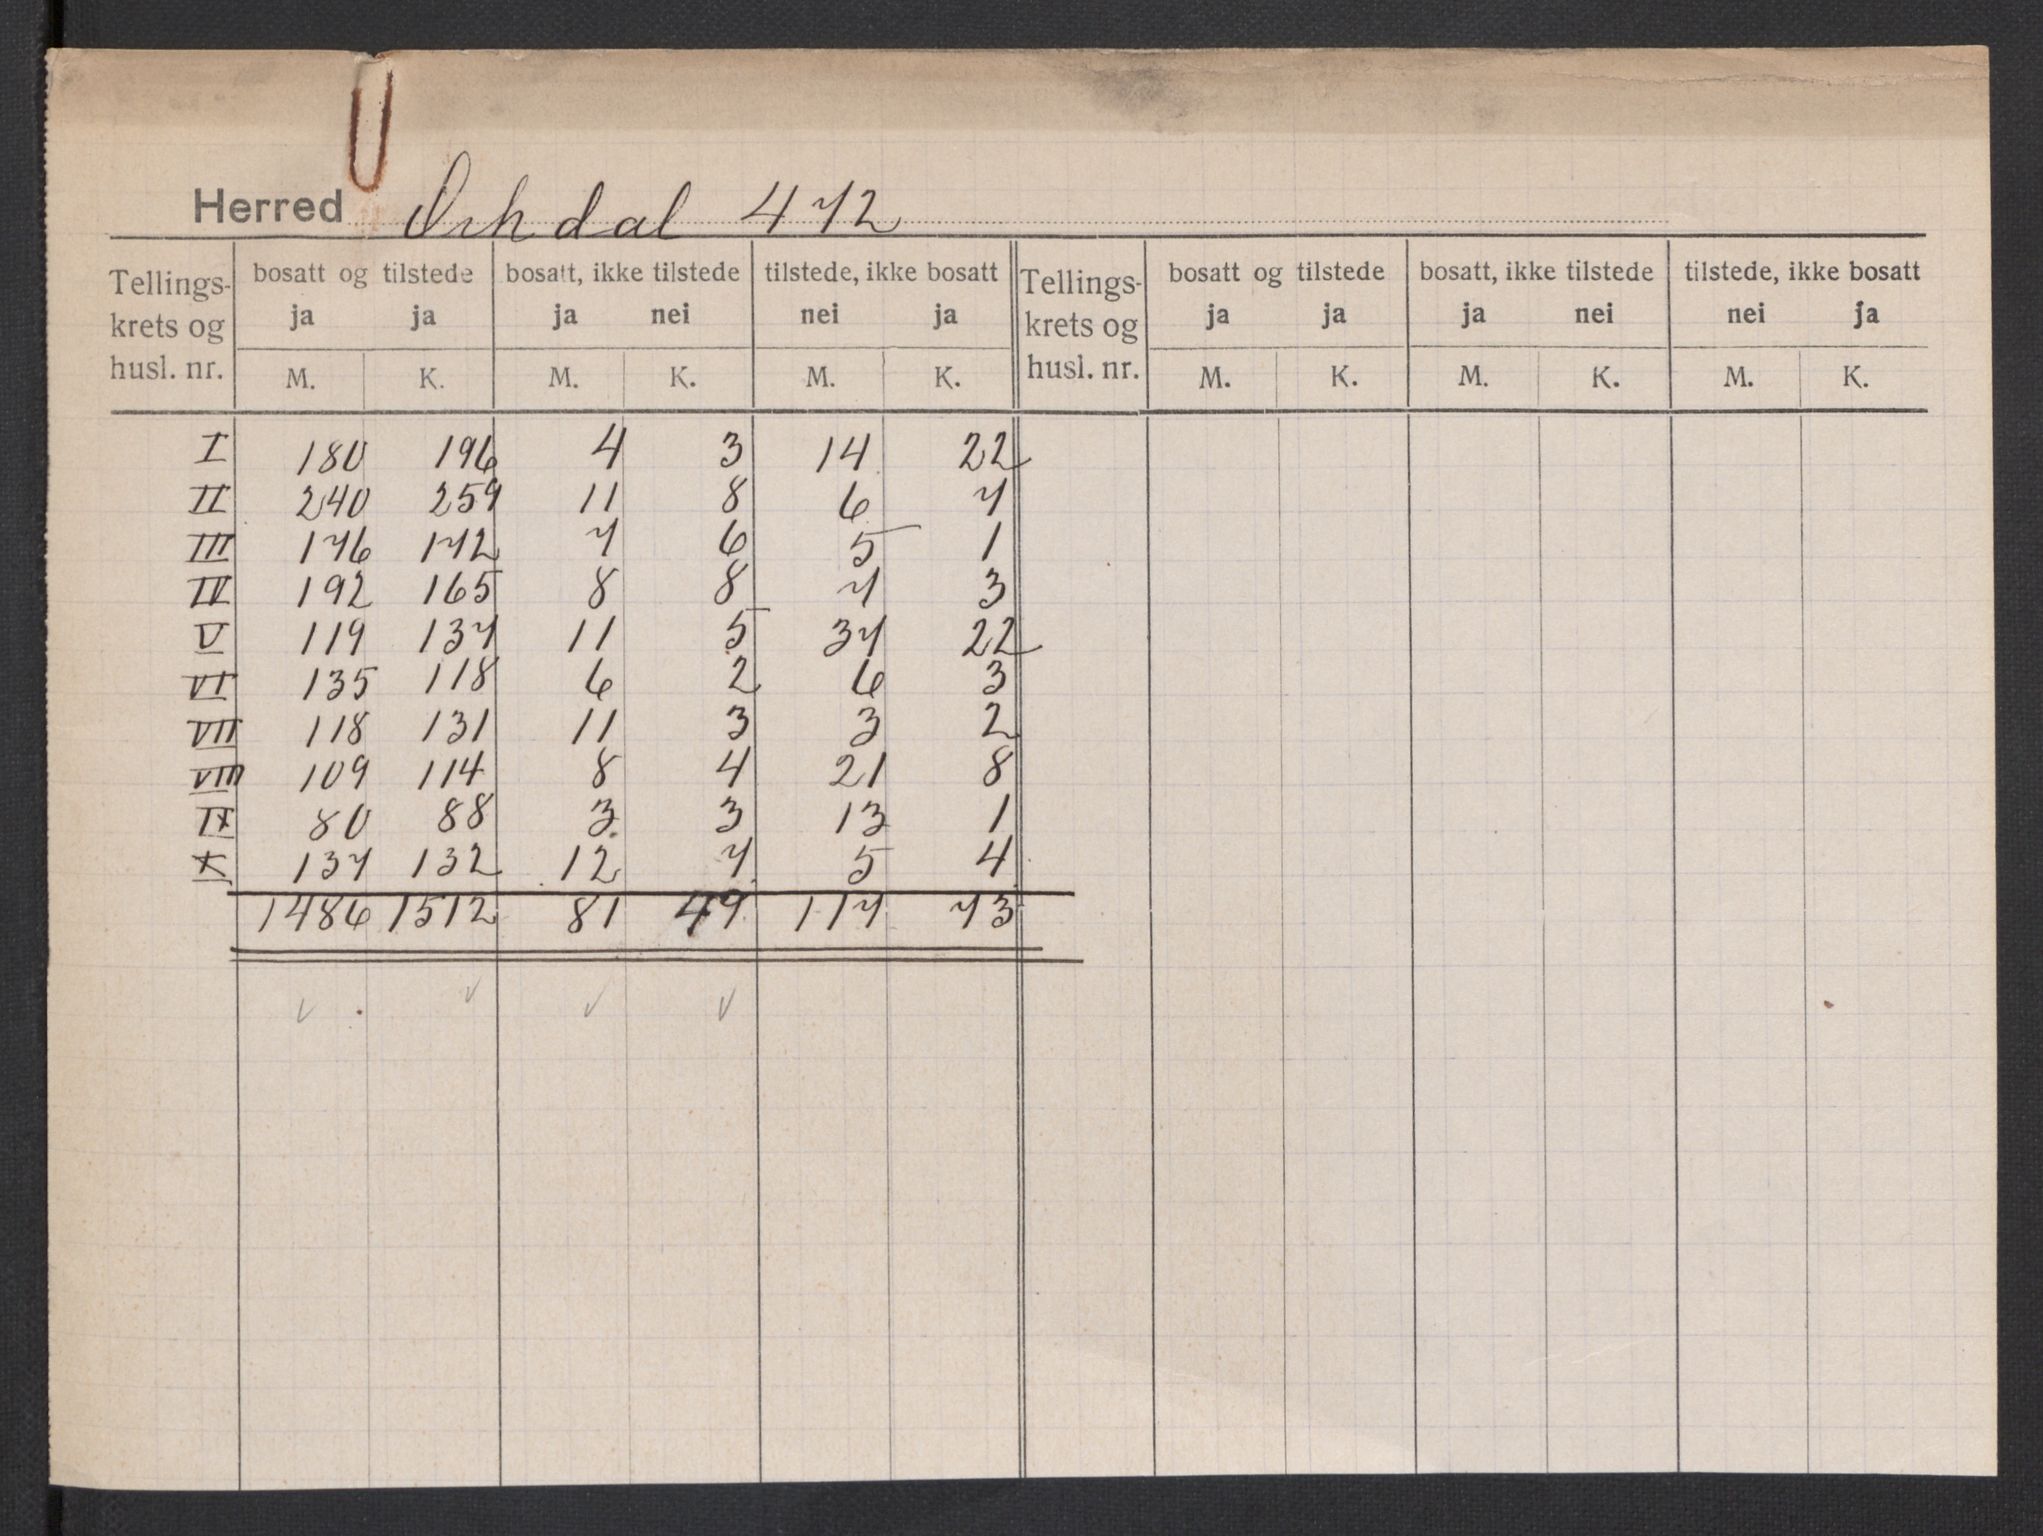 Herred Orkdal 472
Tellings- bosatt og tilstede bosatt, ikke tilstede tilstede, ikke bosatt Tellings- bosatt og tilstede bosatt, ikke tilstede tilstede, ikke bosatt
krets og ja ja ja nei nei ja krets og ja ja ja nei nei ja
husl. nr. M. K. M. K. M. K. husl. nr. M. K. M. K. M. K.
I 180 196 4 3 14 22
II 240 259 11 8 6 7
III 176 172 7 6 5 1
IV 192 165 8 8 7 3
V 119 137 11 5 37 22
VI 135 118 6 2 6 3
VII 118 131 11 3 3 2
VIII 109 114 8 4 21 8
IX 80 88 3 3 13 1
X 137 132 12 7 5 4
1486 1512 81 49 117 73